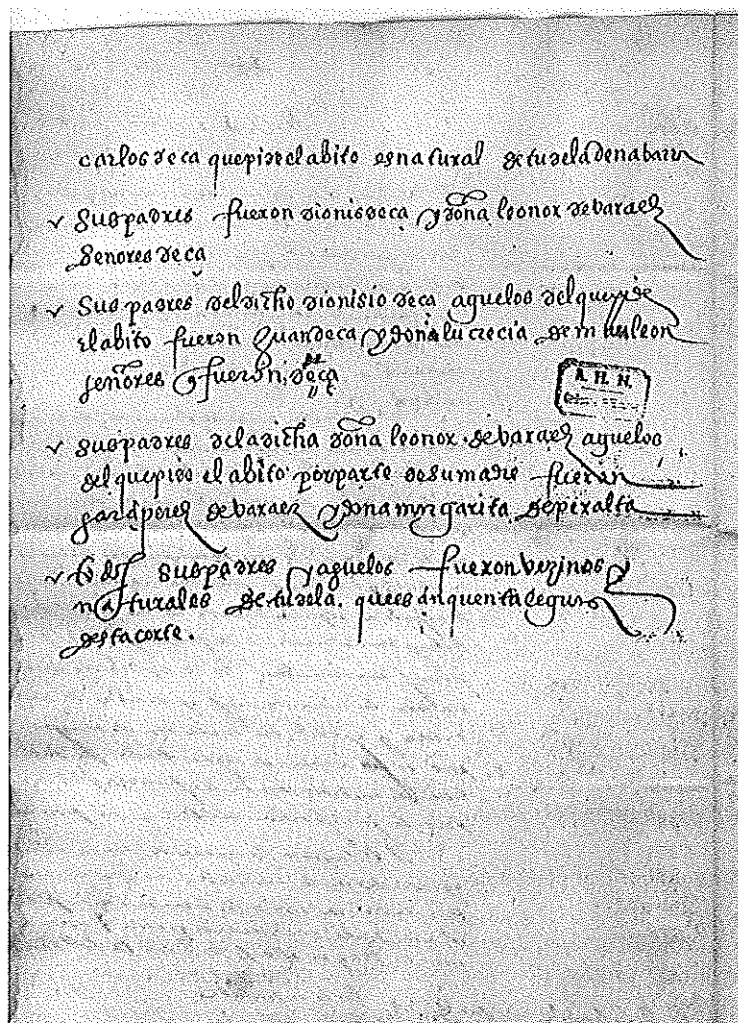 carlos deca que pide el abito es natural de tudela de nabarra
sus padres fueron dionis deca y doña leonor de baraez
señores deca
sus padres del dicho dionisio deca aguelos del que pide
el abito fueron Juan deca y doña lucrecia de mauleon
señores q fueron deca
A. H. N.
sus padres de la dicha doña leonor de baraez aguelos
del que pide el abito por parte de su madre fueron
garci perez de baraez y dona margarita de peralta
sus padres y aguelos fueron vezinos y
naturales de tudela. que es cinquenta leguas
desta corte.